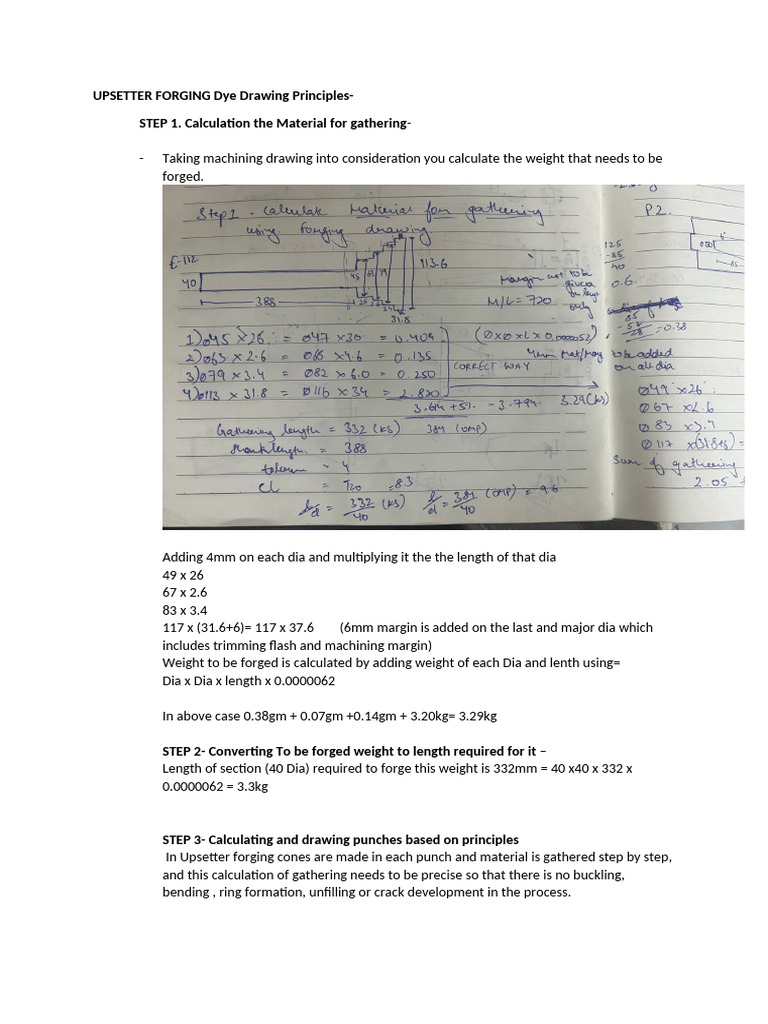 UPSETTER FORGING Dye Drawing Principles-
STEP 1. Calculation the Material for gathering-
- Taking machining drawing into consideration you calculate the weight that needs to be
forged.
Step 1 - Calculate Material for gathering
using forging drawing
P2.
E-112
40
388
45 63 79
113.6
31.8
Margin not to be
given
only
M/L = 720
125
-85
40
0.6
85
-57
28 = 0.38
1) Ø45 × 26 = Ø47 × 30 = 0.409
2) Ø63 × 2.6 = Ø66 × 4.6 = 0.135
3) Ø79 × 3.4 = Ø82 × 6.0 = 0.250
4) Ø113 × 31.8 = Ø116 × 34 = 2.820
(Ø × Ø × L × 0.0000062)
4mm to be added
on all dia
CORRECT WAY
3.614 + 5% = 3.794
3.29 (KS)
Ø49 × 26
Ø67 × 2.6
Ø83 × 3.4
Ø117 ×
Sum of gathering
2.05
Gathering length = 332 (KS) 384 (OMP)
Shank length = 388
= 4
Cl = 720
l/d = 332/40 (KS) = 8.3
l/d = 384/40 (OMP) = 9.6
Adding 4mm on each dia and multiplying it the the length of that dia
49 x 26
67 x 2.6
83 x 3.4
117 x (31.6+6)= 117 x 37.6 (6mm margin is added on the last and major dia which
includes trimming flash and machining margin)
Weight to be forged is calculated by adding weight of each Dia and lenth using=
Dia x Dia x length x 0.0000062
In above case 0.38gm + 0.07gm +0.14gm + 3.20kg= 3.29kg
STEP 2- Converting To be forged weight to length required for it –
Length of section (40 Dia) required to forge this weight is 332mm = 40 x40 x 332 x
0.0000062 = 3.3kg
STEP 3- Calculating and drawing punches based on principles
In Upsetter forging cones are made in each punch and material is gathered step by step,
and this calculation of gathering needs to be precise so that there is no buckling,
bending , ring formation, unfilling or crack development in the process.